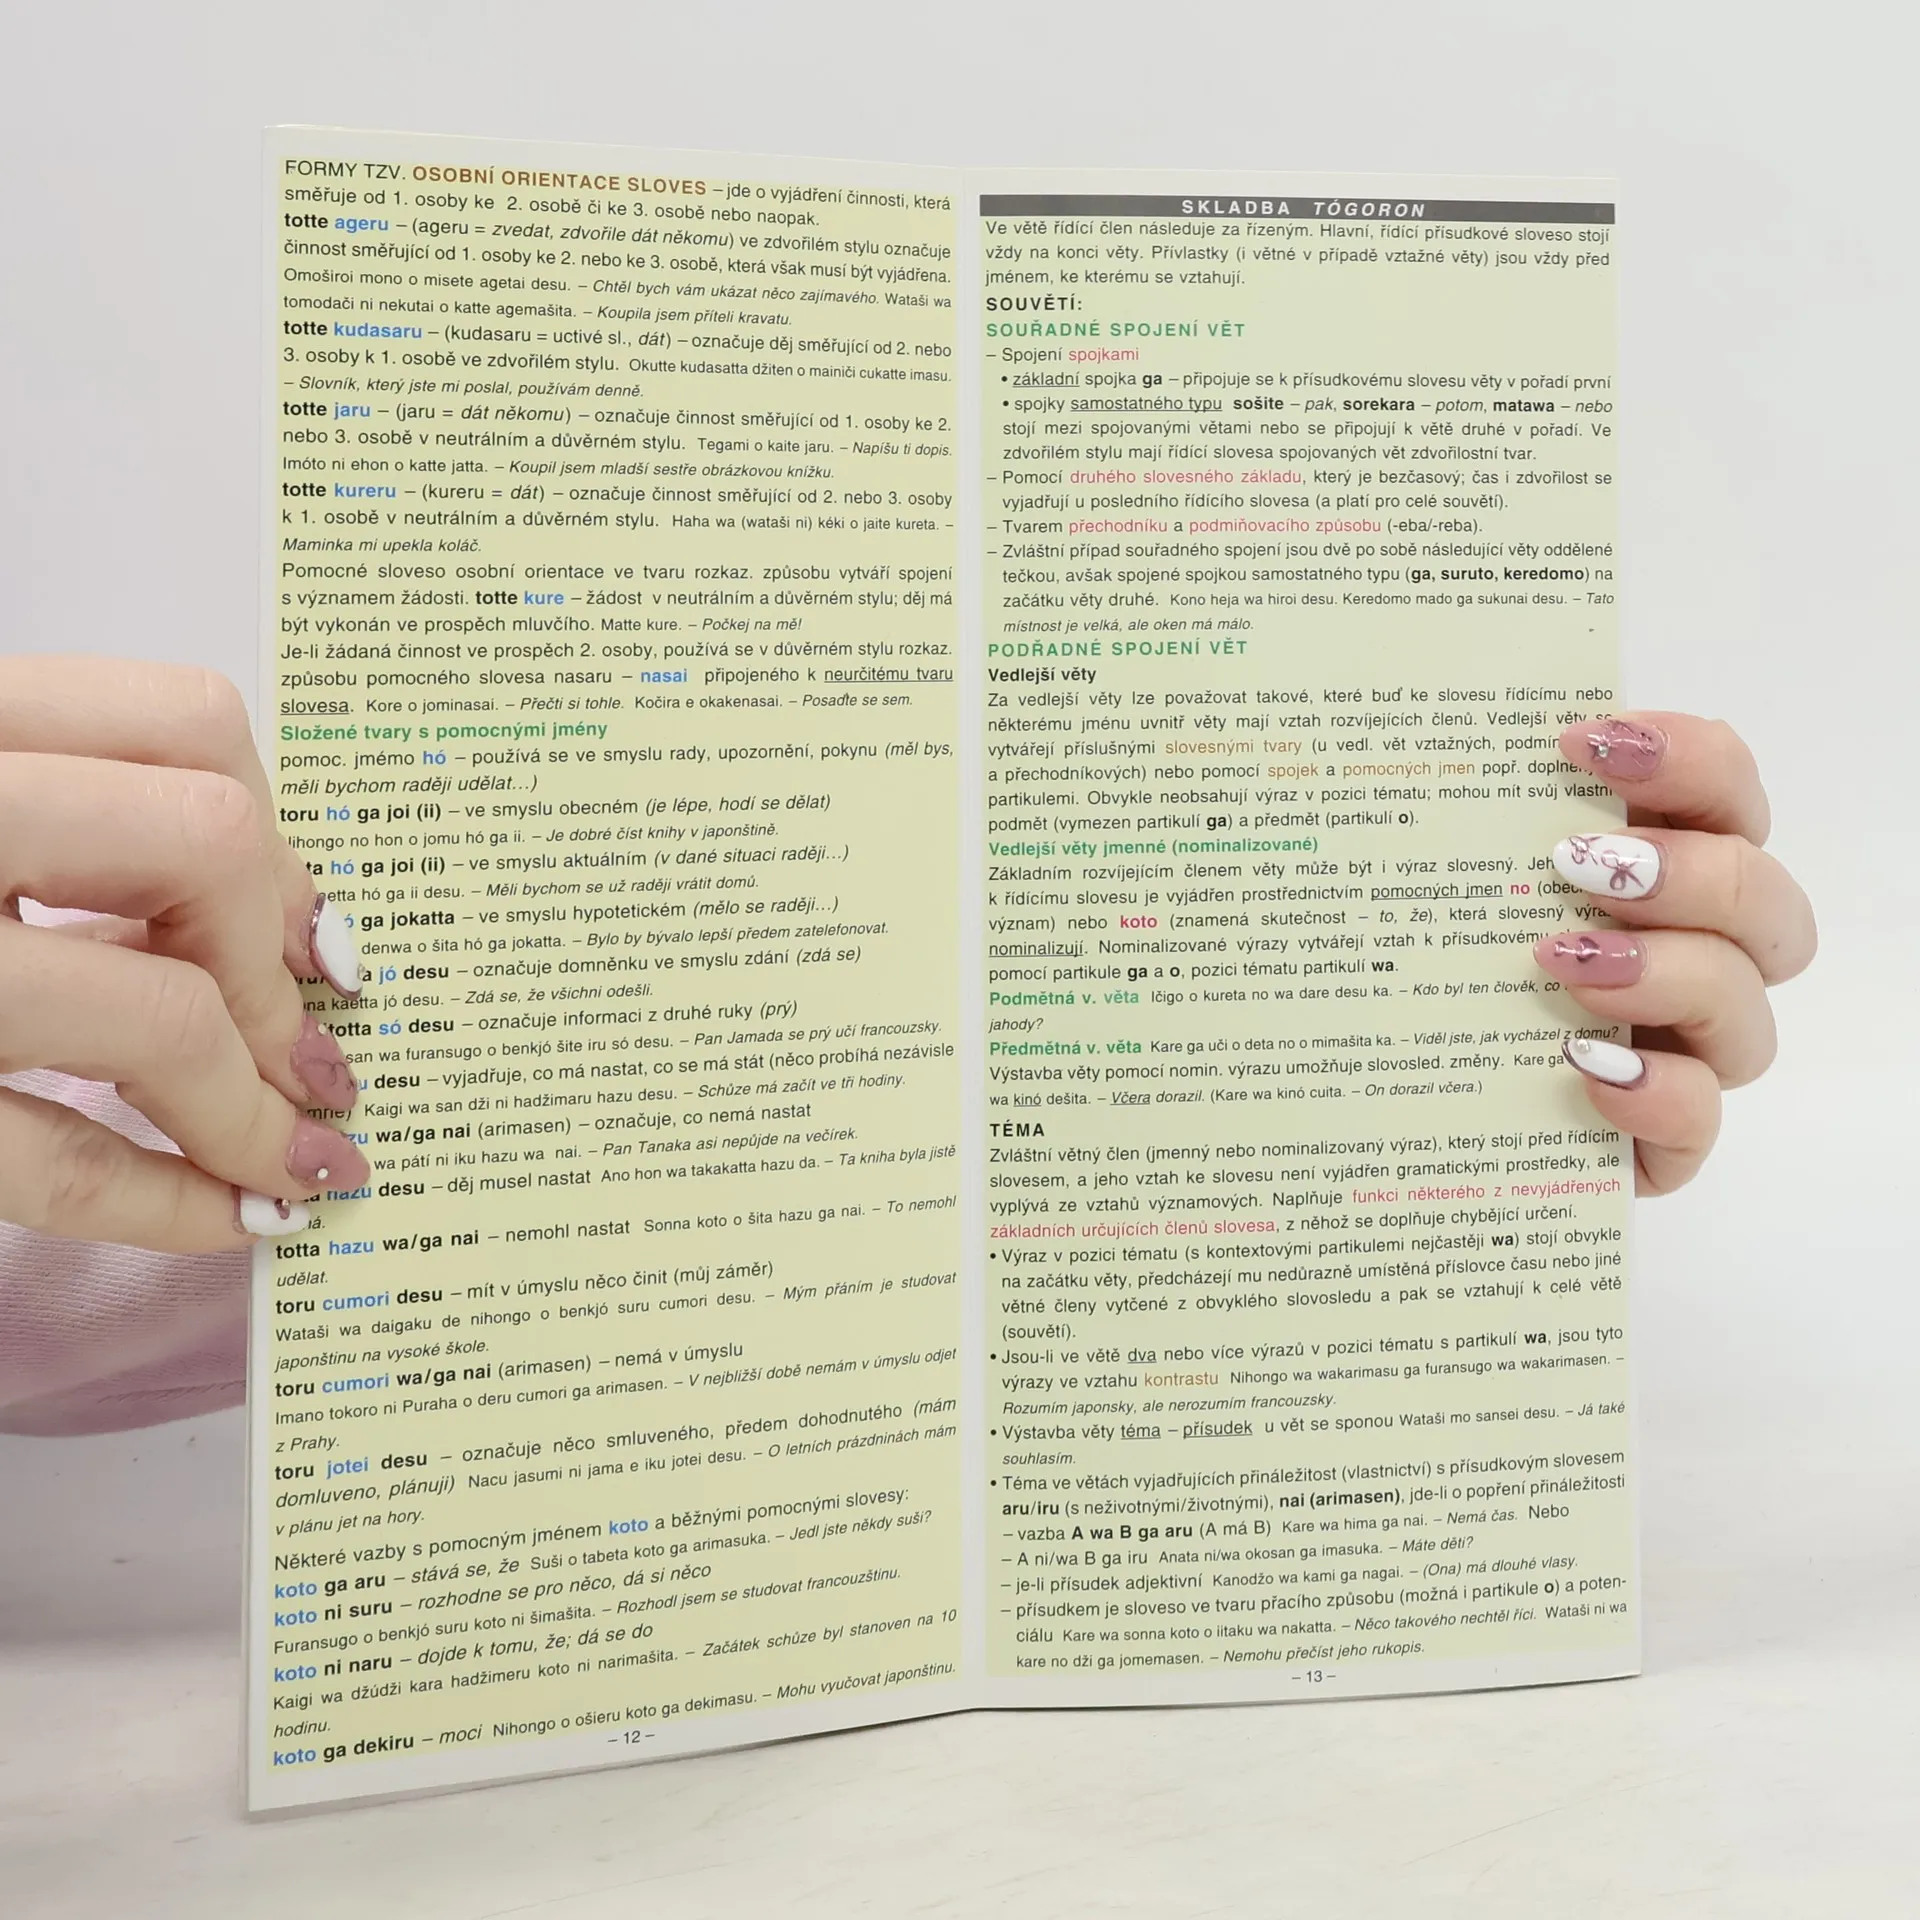 FORMY TZV. OSOBNÍ ORIENTACE SLOVES – jde o vyjádření činnosti, která
směřuje od 1. osoby ke 2. osobě či ke 3. osobě nebo naopak.
totte ageru – (ageru = zvedat, zdvořile dát někomu) ve zdvořilém stylu označuje
činnost směřující od 1. osoby ke 2. nebo ke 3. osobě, která však musí být vyjádřena.
Omoširoi mono o misete agetai desu. – Chtěl bych vám ukázat něco zajímavého. Wataši wa
tomodači ni nekutai o katte agemašita. – Koupila jsem příteli kravatu.
totte kudasaru – (kudasaru = uctivé sl., dát) – označuje děj směřující od 2. nebo
3. osoby k 1. osobě ve zdvořilém stylu. Okutte kudasatta džiten o mainiči cukatte imasu.
– Slovník, který jste mi poslal, používám denně.
totte jaru – (jaru = dát někomu) – označuje činnost směřující od 1. osoby ke 2.
nebo 3. osobě v neutrálním a důvěrném stylu. Tegami o kaite jaru. – Napíšu ti dopis.
Imóto ni ehon o katte jatta. – Koupil jsem mladší sestře obrázkovou knížku.
totte kureru – (kureru = dát) – označuje činnost směřující od 2. nebo 3. osoby
k 1. osobě v neutrálním a důvěrném stylu. Haha wa (wataši ni) kéki o jaite kureta. –
Maminka mi upekla koláč.
Pomocné sloveso osobní orientace ve tvaru rozkaz. způsobu vytváří spojení
s významem žádosti. totte kure – žádost v neutrálním a důvěrném stylu; děj má
být vykonán ve prospěch mluvčího. Matte kure. – Počkej na mě!
Je-li žádaná činnost ve prospěch 2. osoby, používá se v důvěrném stylu rozkaz.
způsobu pomocného slovesa nasaru – nasai připojeného k neurčitému tvaru
slovesa. Kore o jominasai. – Přečti si tohle. Kočira e okakenasai. – Posaďte se sem.
Složené tvary s pomocnými jmény
pomoc. jmémo hó – používá se ve smyslu rady, upozornění, pokynu (měl bys,
měli bychom raději udělat...)
toru hó ga joi (ii) – ve smyslu obecném (je lépe, hodí se dělat)
no hon o jomu hó ga ii. – Je dobré číst knihy v japonštině.
hó ga joi (ii) – ve smyslu aktuálním (v dané situaci raději...)
hó ga ii desu. – Měli bychom se už raději vrátit domů.
ga jokatta – ve smyslu hypotetickém (mělo se raději...)
denwa o šita hó ga jokatta. – Bylo by bývalo lepší předem zatelefonovat.
jó desu – označuje domněnku ve smyslu zdání (zdá se)
kaetta jó desu. – Zdá se, že všichni odešli.
só desu – označuje informaci z druhé ruky (prý)
wa furansugo o benkjó šite iru só desu. – Pan Jamada se prý učí francouzsky.
desu – vyjadřuje, co má nastat, co se má stát (něco probíhá nezávisle
Kaigi wa san dži ni hadžimaru hazu desu. – Schůze má začít ve tři hodiny.
wa/ga nai (arimasen) – označuje, co nemá nastat
wa pátí ni iku hazu wa nai. – Pan Tanaka asi nepůjde na večírek.
hazu desu – děj musel nastat Ano hon wa takakatta hazu da. – Ta kniha byla jistě
totta hazu wa/ga nai – nemohl nastat Sonna koto o šita hazu ga nai. – To nemohl
udělat.
toru cumori desu – mít v úmyslu něco činit (můj záměr)
Wataši wa daigaku de nihongo o benkjó suru cumori desu. – Mým přáním je studovat
japonštinu na vysoké škole.
toru cumori wa/ga nai (arimasen) – nemá v úmyslu
Imano tokoro ni Puraha o deru cumori ga arimasen. – V nejbližší době nemám v úmyslu odjet
z Prahy.
toru jotei desu – označuje něco smluveného, předem dohodnutého (mám
domluveno, plánuji) Nacu jasumi ni jama e iku jotei desu. – O letních prázdninách mám
v plánu jet na hory.
Některé vazby s pomocným jménem koto a běžnými pomocnými slovesy:
koto ga aru – stává se, že Suši o tabeta koto ga arimasuka. – Jedl jste někdy suši?
koto ni suru – rozhodne se pro něco, dá si něco
Furansugo o benkjó suru koto ni šimašita. – Rozhodl jsem se studovat francouzštinu.
koto ni naru – dojde k tomu, že; dá se do
Kaigi wa džúdži kara hadžimeru koto ni narimašita. – Začátek schůze byl stanoven na 10
hodinu.
koto ga dekiru – moci Nihongo o ošieru koto ga dekimasu. – Mohu vyučovat japonštinu.
– 12 –
SKLADBA TÓGORON
Ve větě řídící člen následuje za řízeným. Hlavní, řídící přísudkové sloveso stojí
vždy na konci věty. Přívlastky (i větné v případě vztažné věty) jsou vždy před
jménem, ke kterému se vztahují.
SOUVĚTÍ:
SOUŘADNÉ SPOJENÍ VĚT
– Spojení spojkami
• základní spojka ga – připojuje se k přísudkovému slovesu věty v pořadí první
• spojky samostatného typu sošite – pak, sorekara – potom, matawa – nebo
stojí mezi spojovanými větami nebo se připojují k větě druhé v pořadí. Ve
zdvořilém stylu mají řídící slovesa spojovaných vět zdvořilostní tvar.
– Pomocí druhého slovesného základu, který je bezčasový; čas i zdvořilost se
vyjadřují u posledního řídícího slovesa (a platí pro celé souvětí).
– Tvarem přechodníku a podmiňovacího způsobu (-eba/-reba).
– Zvláštní případ souřadného spojení jsou dvě po sobě následující věty oddělené
tečkou, avšak spojené spojkou samostatného typu (ga, suruto, keredomo) na
začátku věty druhé. Kono heja wa hiroi desu. Keredomo mado ga sukunai desu. – Tato
místnost je velká, ale oken má málo.
PODŘADNÉ SPOJENÍ VĚT
Vedlejší věty
Za vedlejší věty lze považovat takové, které buď ke slovesu řídícímu nebo
některému jménu uvnitř věty mají vztah rozvíjejících členů. Vedlejší věty se
vytvářejí příslušnými slovesnými tvary (u vedl. vět vztažných,
a přechodníkových) nebo pomocí spojek a pomocných jmen popř.
partikulemi. Obvykle neobsahují výraz v pozici tématu; mohou mít svůj vlastní
podmět (vymezen partikulí ga) a předmět (partikulí o).
Vedlejší věty jmenné (nominalizované)
Základním rozvíjejícím členem věty může být i výraz slovesný.
k řídícímu slovesu je vyjádřen prostřednictvím pomocných jmen no
význam) nebo koto (znamená skutečnost – to, že), která slovesný výraz
nominalizují. Nominalizované výrazy vytvářejí vztah k přísudkovému
pomocí partikule ga a o, pozici tématu partikulí wa.
Podmětná v. věta Ičigo o kureta no wa dare desu ka. – Kdo byl ten člověk, co
jahody?
Předmětná v. věta Kare ga uči o deta no o mimašita ka. – Viděl jste, jak vycházel z domu?
Výstavba věty pomocí nomin. výrazu umožňuje slovosled. změny. Kare ga
wa kinó dešita. – Včera dorazil. (Kare wa kinó cuita. – On dorazil včera.)
TÉMA
Zvláštní větný člen (jmenný nebo nominalizovaný výraz), který stojí před řídícím
slovesem, a jeho vztah ke slovesu není vyjádřen gramatickými prostředky, ale
vyplývá ze vztahů významových. Naplňuje funkci některého z nevyjádřených
základních určujících členů slovesa, z něhož se doplňuje chybějící určení.
• Výraz v pozici tématu (s kontextovými partikulemi nejčastěji wa) stojí obvykle
na začátku věty, předcházejí mu nedůrazně umístěná příslovce času nebo jiné
větné členy vytčené z obvyklého slovosledu a pak se vztahují k celé větě
(souvětí).
• Jsou-li ve větě dva nebo více výrazů v pozici tématu s partikulí wa, jsou tyto
výrazy ve vztahu kontrastu Nihongo wa wakarimasu ga furansugo wa wakarimasen. –
Rozumím japonsky, ale nerozumím francouzsky.
• Výstavba věty téma – přísudek u vět se sponou Wataši mo sansei desu. – Já také
souhlasím.
• Téma ve větách vyjadřujících přináležitost (vlastnictví) s přísudkovým slovesem
aru/iru (s neživotnými/životnými), nai (arimasen), jde-li o popření přináležitosti
– vazba A wa B ga aru (A má B) Kare wa hima ga nai. – Nemá čas. Nebo
– A ni/wa B ga iru Anata ni/wa okosan ga imasuka. – Máte děti?
– je-li přísudek adjektivní Kanodžo wa kami ga nagai. – (Ona) má dlouhé vlasy.
– přísudkem je sloveso ve tvaru přacího způsobu (možná i partikule o) a poten-
ciálu Kare wa sonna koto o iitaku wa nakatta. – Něco takového nechtěl říci. Wataši ni wa
kare no dži ga jomemasen. – Nemohu přečíst jeho rukopis.
– 13 –